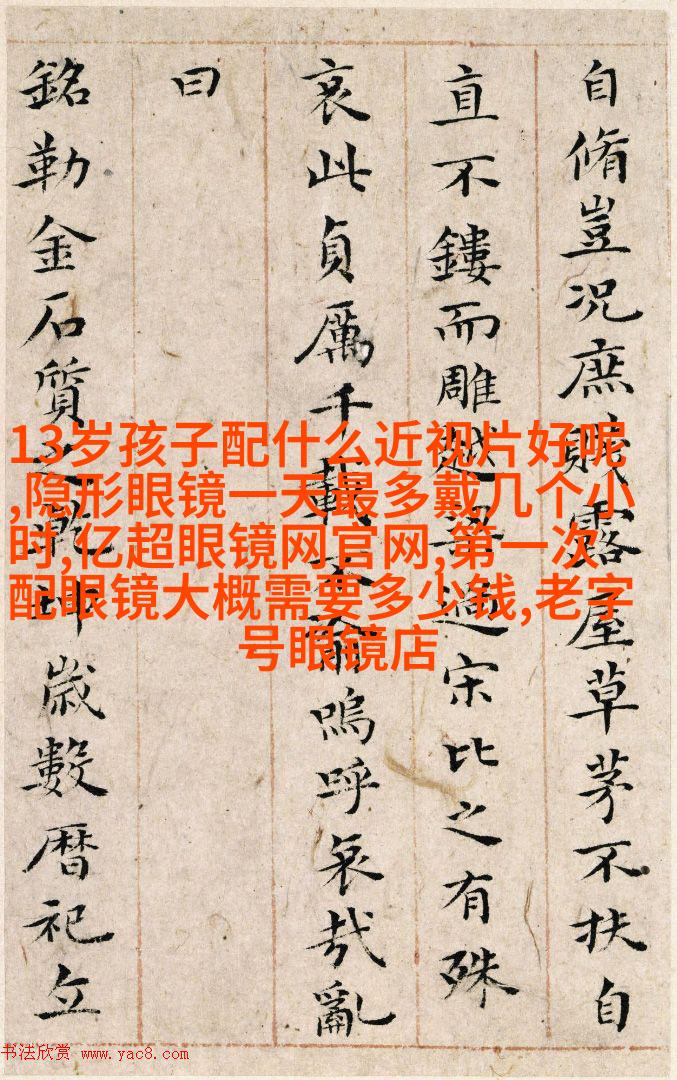 自脩豈况庶賤露屋草茅不扶自
直不鏤而雕越梁過宋比之有殊
哀此貞厲千載不嗚呼哀哉亂
曰
銘勒金石質之乾坤歲數暦祀立
13岁孩子配什么近视片好呢
,隐形眼镜一天最多戴几个小
时,亿超眼镜网官网,第一次
配眼镜大概需要多少钱,老字
号眼镜店
书法欣赏 www.yac8.com